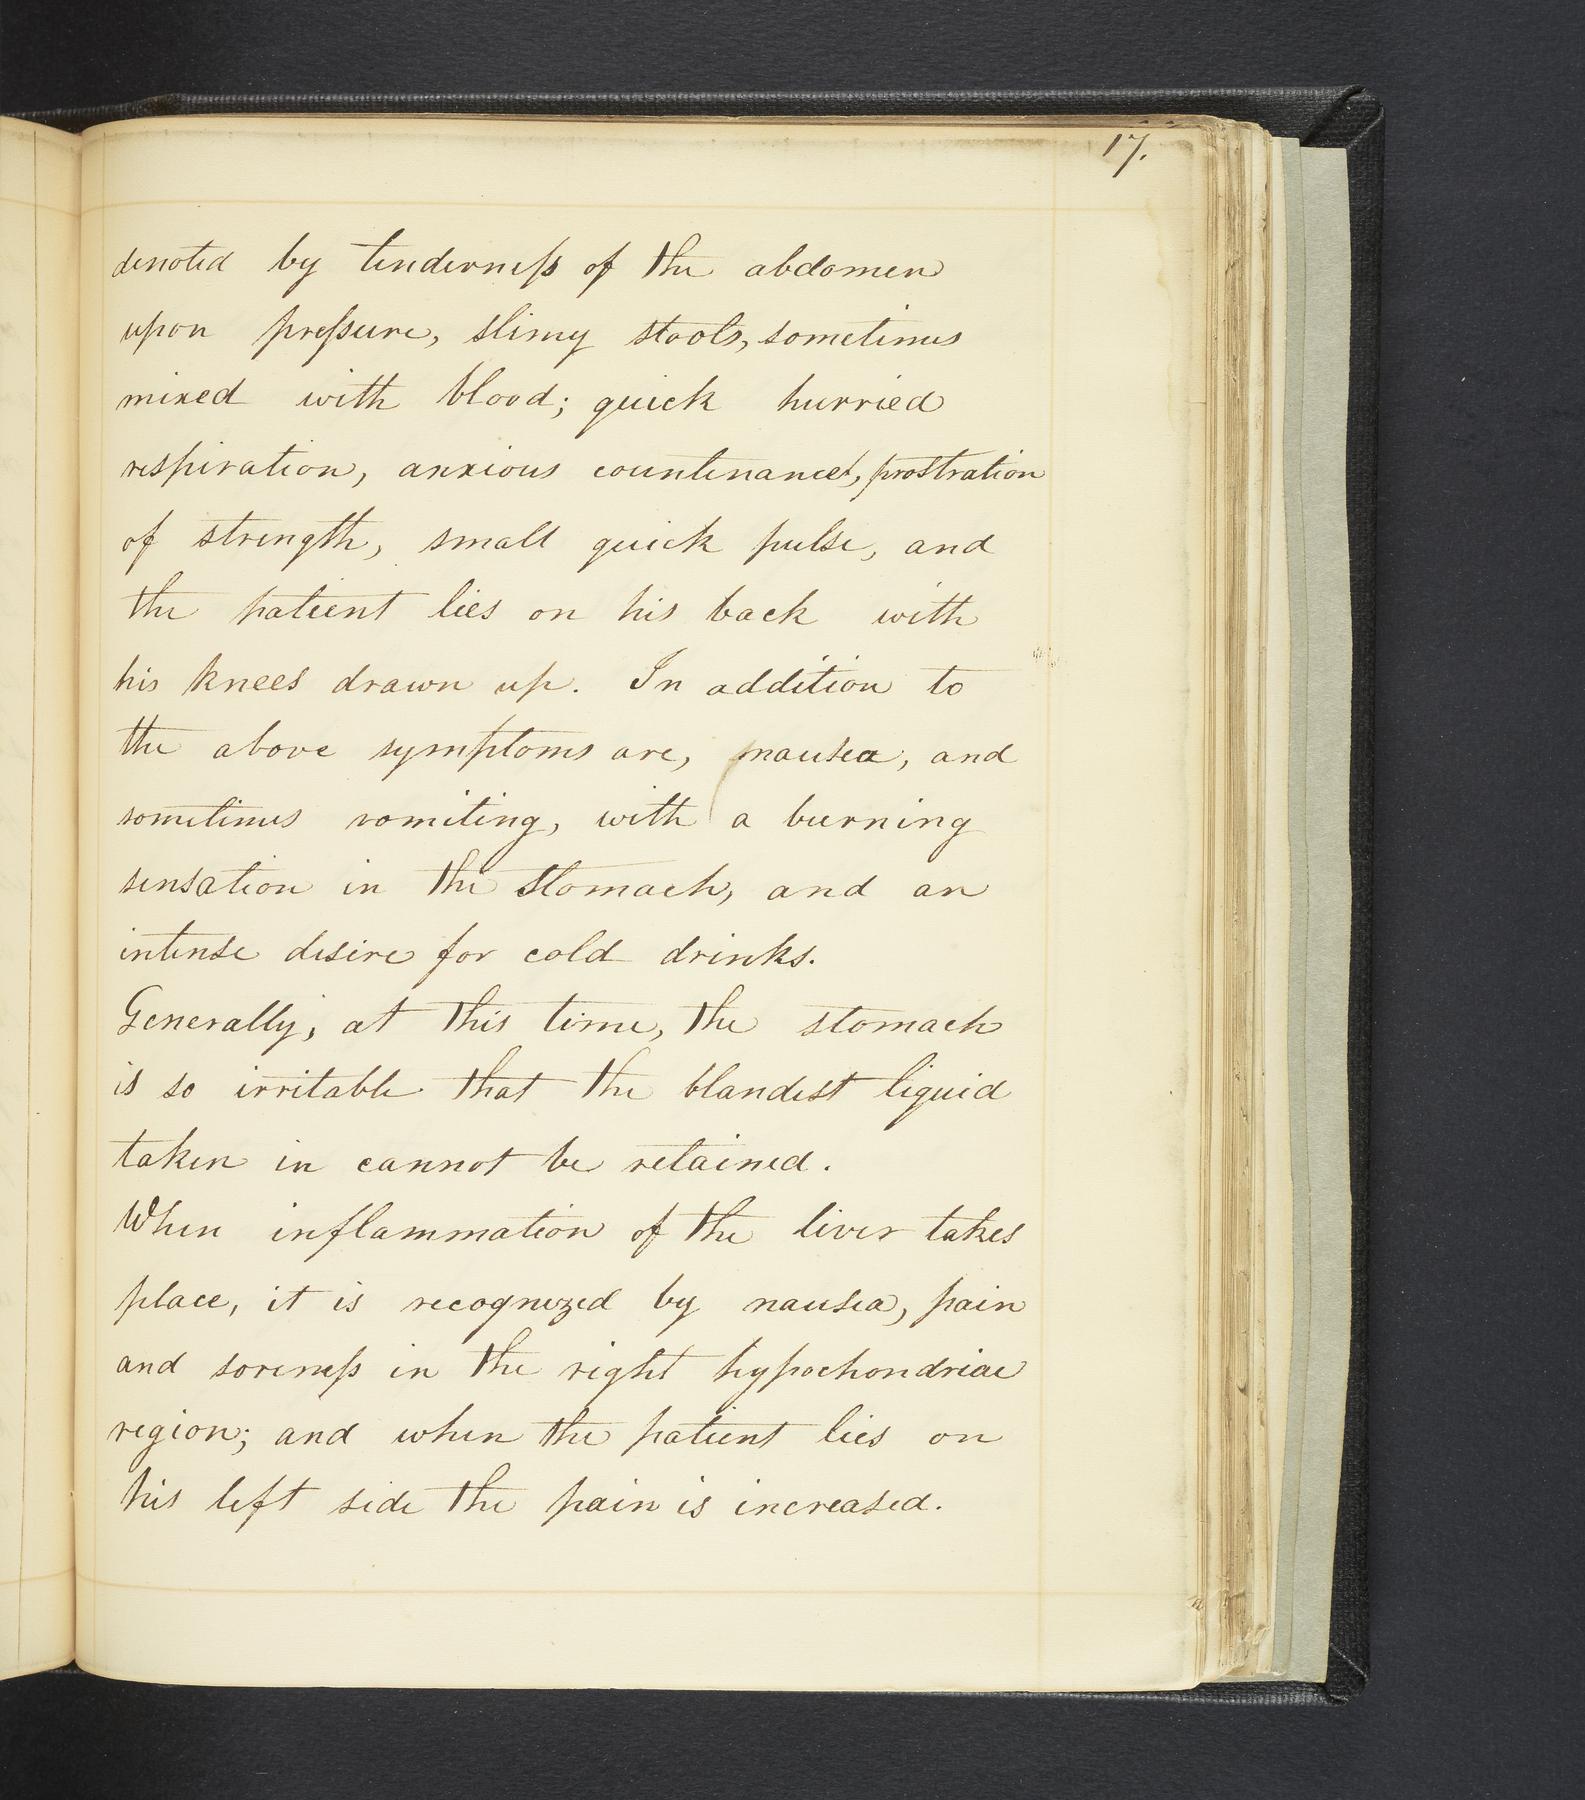 17.
denoted by tenderneſs of the abdomen
upon preſsure, slimy stools, sometimes
mixed with blood; quick hurried
respiration, anxious countenance, prostration
of strength, small quick pulse, and
the patient lies on his back with
his knees drawn up. In addition to
the above symptoms are, nausea, and
sometimes vomiting, with a burning
sensation in the stomach, and an
intense desire for cold drinks.
Generally, at this time, the stomach
is so irritable that the blandest liquid
taken in cannot be retained.
When inflammation of the liver takes
place, it is recognized by nausea, pain
and soreneſs in the right hypochondriac
region; and when the patient lies on
his left side the pain is increased.